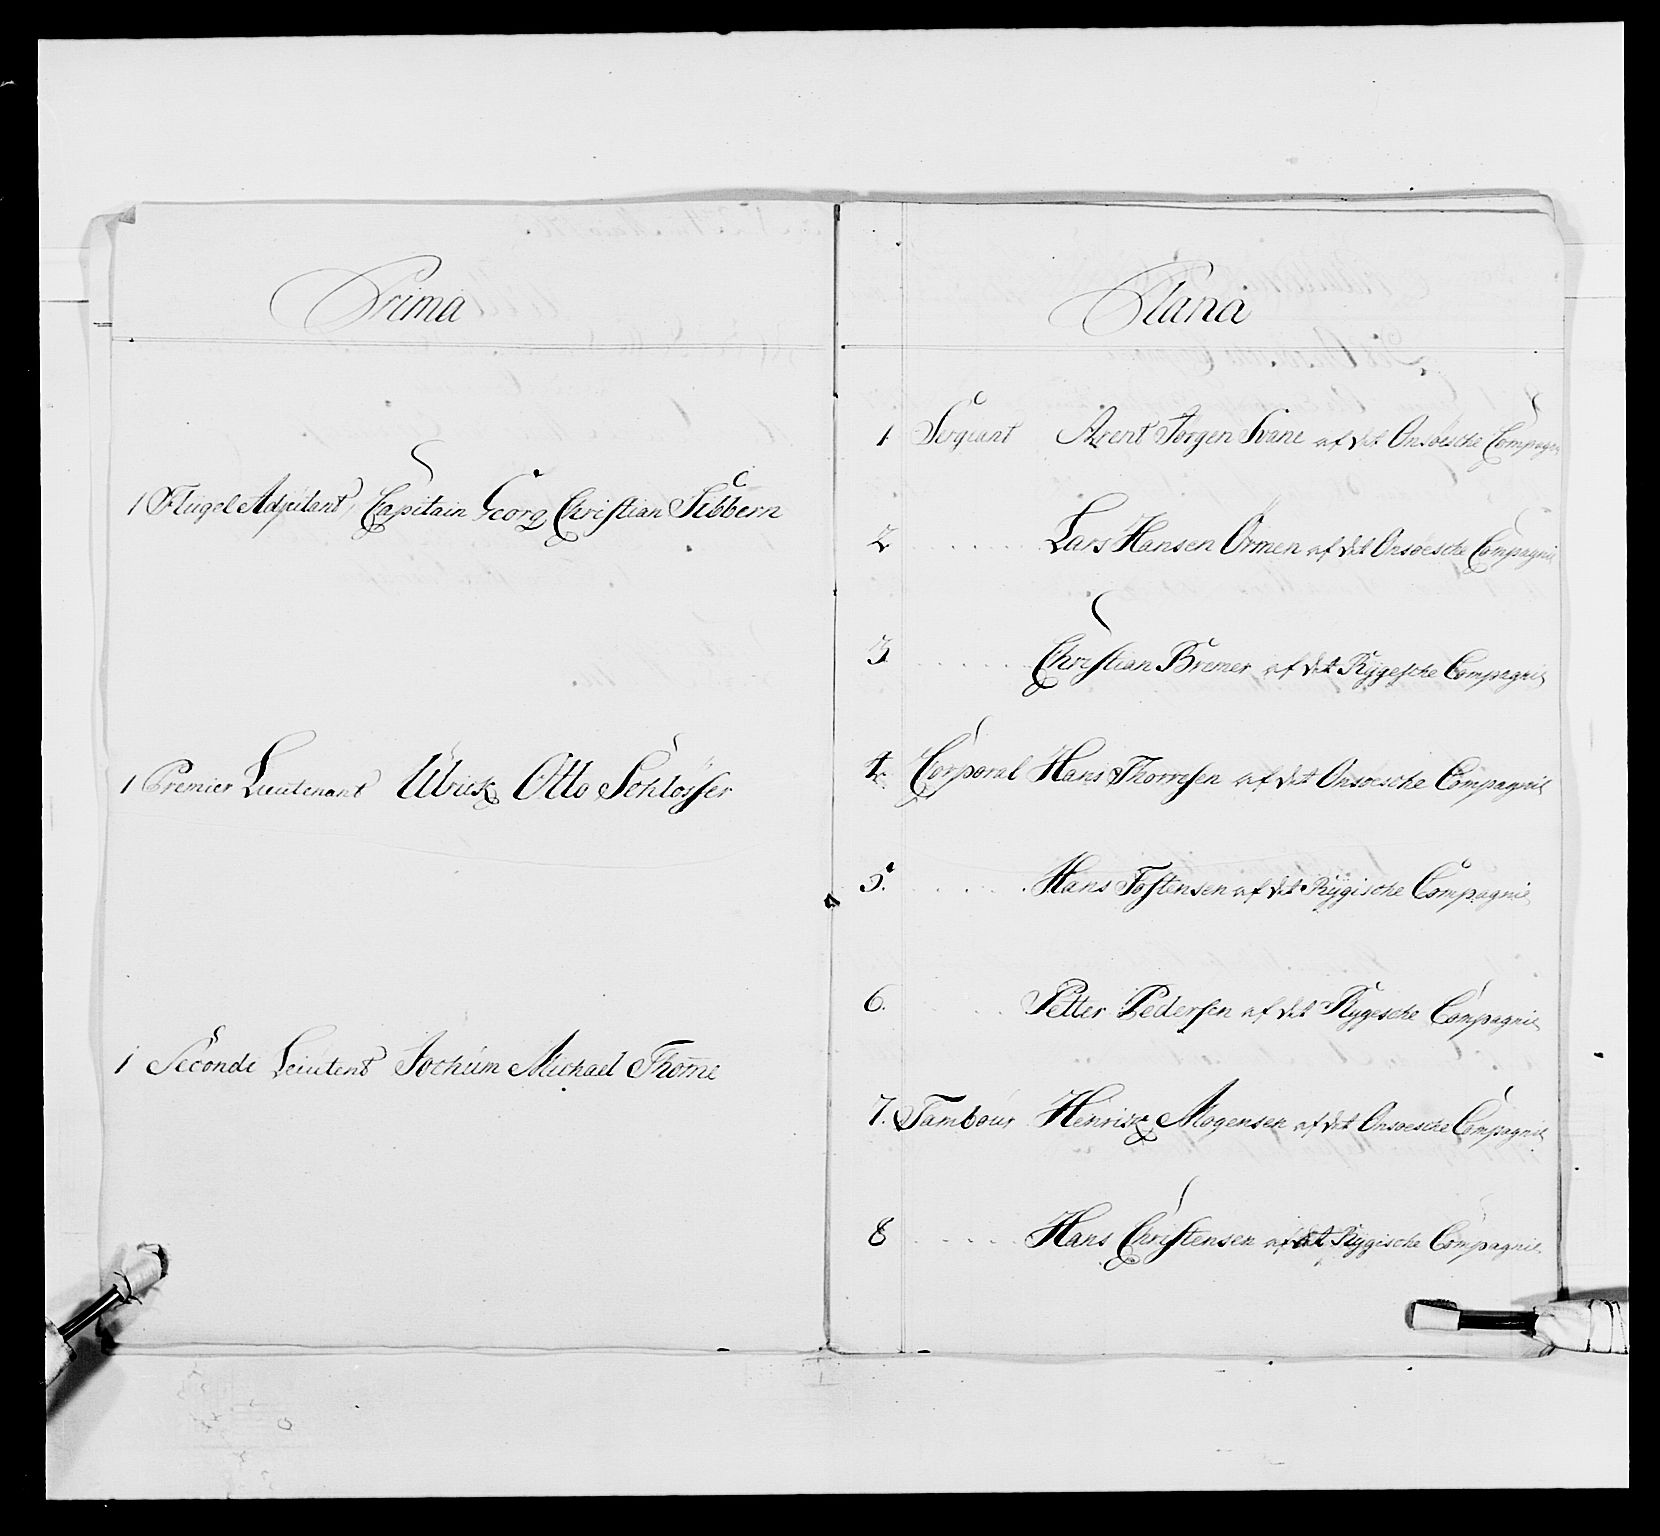 Prima
1 Flügel Adjutant, Capitain Georg Christian Sibbern
1 Premier Lieutenant Ulrick Otto Schlösser
1 Seconde Leiutent Jochum Michael Thome
Plana
1 Sergiant Arent Jørgen Svane af det Onsöesche Compagnie
2 . . . . . Lars Hansen Ormen af det Onsöesche Compagnie
3. . . . . . Christian Bremer af det Rÿgesche Compagnie
4. Corporal Hans Thorresen af det Onsoesche Compagnie
5. . . . . . Hans Tostensen af det Rÿgische Compagnie
6. . . . . Petter Pedersen af det Rygesche Compagnie
7. Tambour Henrick Mogensen af det Onsoesche Compagnie
8 . . . . . Hans Christensen af det Rygische Compagnie